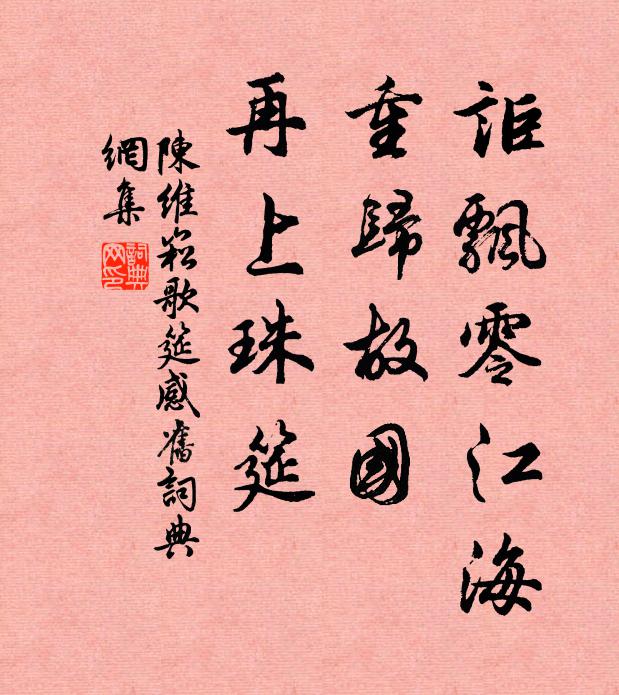 詎飄零江海
重歸故國
再上珠筵
陳維崧歌筵感舊詞典
網集
詞典
网印